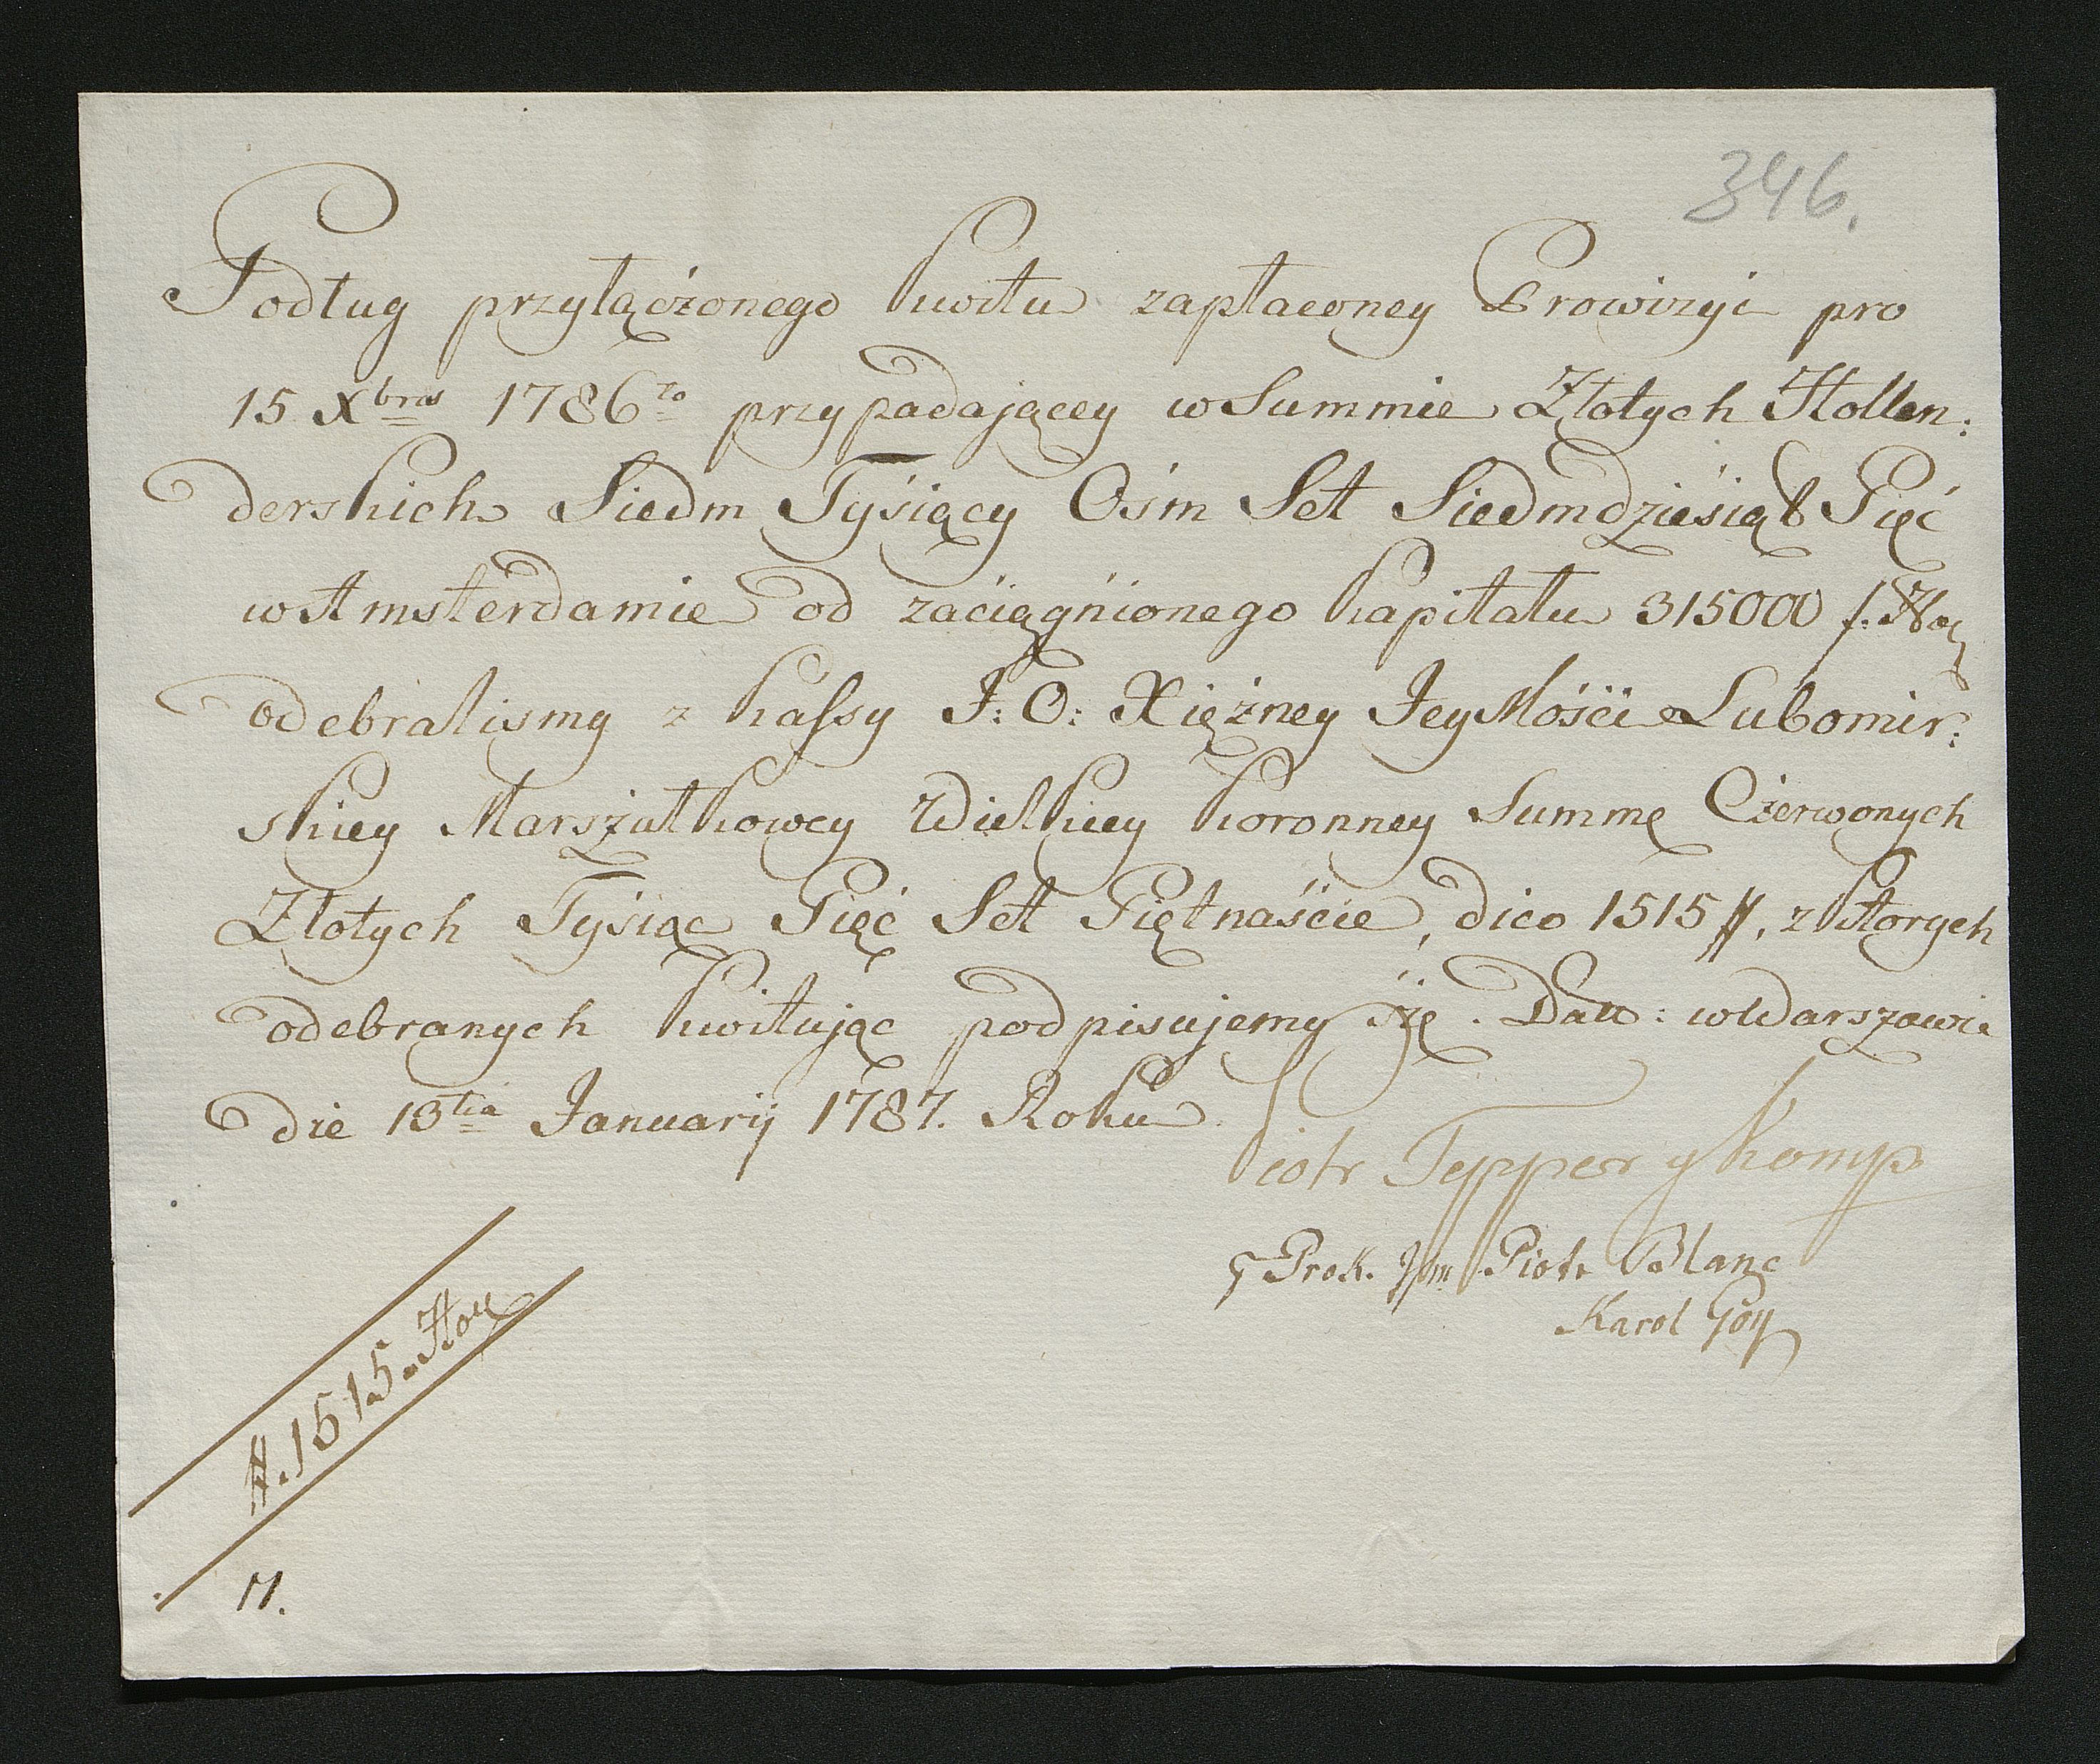 346.
Podług przyłączonego kwitu zapłaconey Prowizyi pro
15 Xbris 1786to przypadającey w Summie Złotych Hollen:
derskich Siedm Tysiący Ośm Set Siedmdziesiąt Pięć
w Amsterdamie od zaciągnionego kapitału 315000 f: Hol
odebralismy z kassy J: O: Xiężney JeyMości Lubomir:
skiey Marszałkowey Wielkiey koronney Summę Czerwonych
Złotych Tysiąc Pięć Set Piętnaście, dico 1515 #, z ktorych
odebranych kwitując podpisujemy się. Datt: w Warszawie
die 13tia Januarij 1787. Roku
Piotr Tepper y Komp
Prok. Jm Piotr Blanc
Karol Goy
#. 1515. Holl
11.